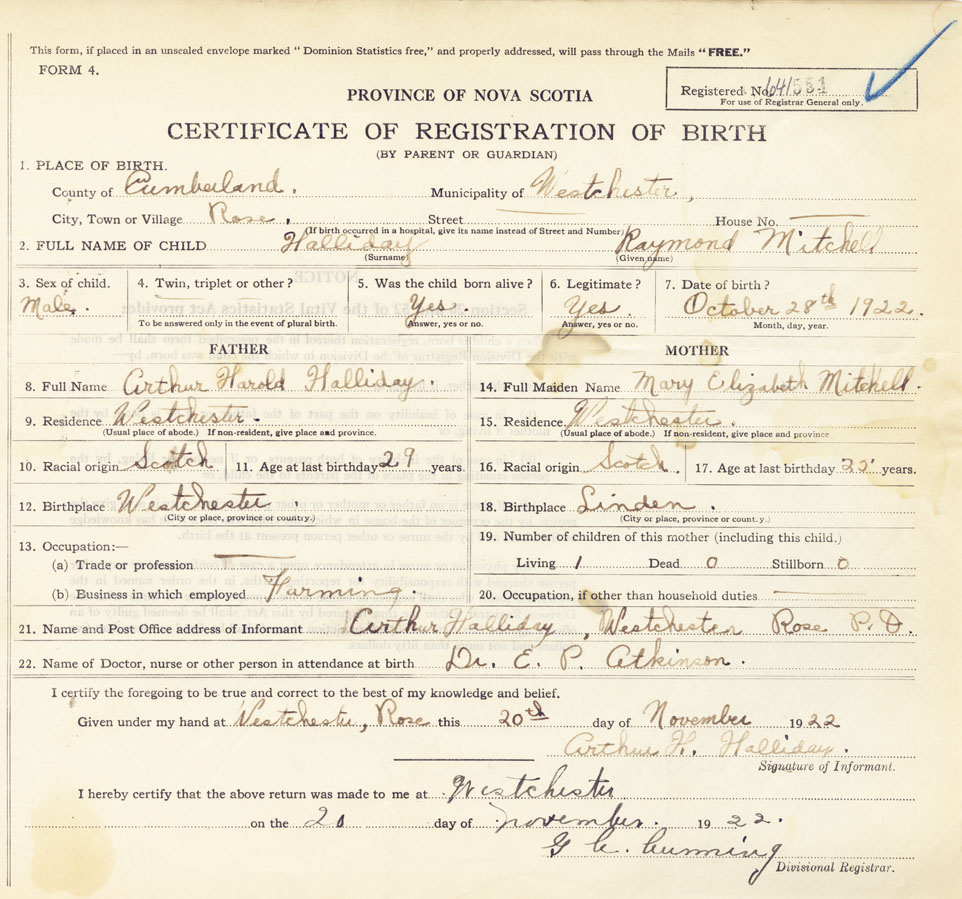 This form, if placed in an unsealed envelope marked "Dominion Statistics free," and properly addressed, will pass through the Mails "FREE."
FORM 4.
Registered No. 641551
For use of Registrar General only.
PROVINCE OF NOVA SCOTIA
CERTIFICATE OF REGISTRATION OF BIRTH
(BY PARENT OR GUARDIAN)
1. PLACE OF BIRTH.
County of Cumberland. Municipality of Westchester,
City, Town or Village Rose. Street House No.
(If birth occurred in a hospital, give its name instead of Street and Number)
2. FULL NAME OF CHILD Halliday Raymond Mitchell
(Surname) (Given name)
3. Sex of child. 4. Twin, triplet or other? 5. Was the child born alive? 6. Legitimate? 7. Date of birth?
Male. Yes. Yes. October 28th 1922.
To be answered only in the event of plural birth. Answer, yes or no. Answer, yes or no. Month, day, year.
FATHER MOTHER
8. Full Name Arthur Harold Halliday. 14. Full Maiden Name Mary Elizabeth Mitchell.
9. Residence Westchester. 15. Residence. Westchester.
(Usual place of abode.) If non-resident, give place and province. (Usual place of abode.) If non-resident, give place and province
10. Racial origin Scotch 11. Age at last birthday 29 years. 16. Racial origin Scotch. 17. Age at last birthday years.
12. Birthplace Westchester. 18. Birthplace Linden.
(City or place, province or country.) (City or place, province or county.)
13. Occupation:— 19. Number of children of this mother (including this child.)
(a) Trade or profession Living 1 Dead 0 Stillborn 0
(b) Business in which employed Farming. 20. Occupation, if other than household duties
21. Name and Post Office address of Informant Arthur Halliday, Westchester Rose P.O.
22. Name of Doctor, nurse or other person in attendance at birth Dr. E. P. Atkinson.
I certify the foregoing to be true and correct to the best of my knowledge and belief.
Given under my hand at Westchester, Rose this 20th day of November 1922
Arthur H. Halliday.
Signature of Informant.
I hereby certify that the above return was made to me at Westchester
on the 20 day of November. 1922.
G. C. Cumming
Divisional Registrar.